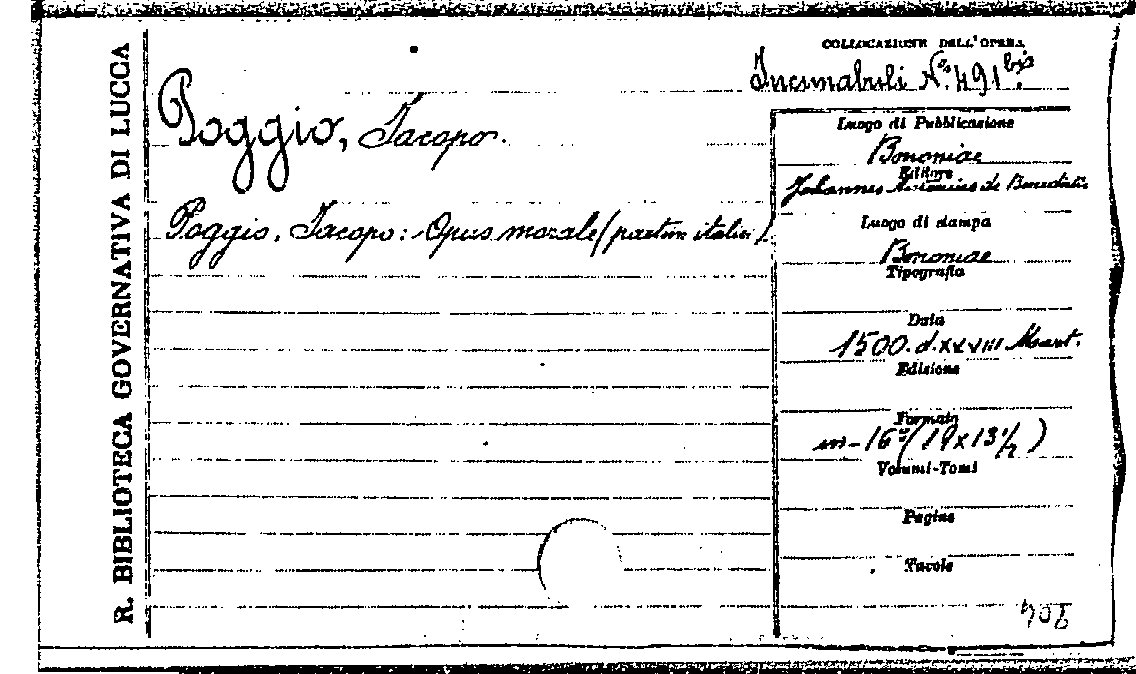 R. BIBLIOTECA GOVERNATIVA DI LUCCA
COLLOCAZIONE DELL'OPERA
Incunabuli N.º 491 bis.
Poggio, Iacopo.
Poggio, Iacopo: Opus morale (partim italice).
Luogo di Pubblicazione
Bononiae
Editore
Johannes Antonius de Benedictis
Luogo di stampa
Bononiae
Tipografia
Data
1500. d. XXVIII Mart.
Edizione
Formato
in-16º (19x13½)
Volumi-Tomi
Pagine
Tavole